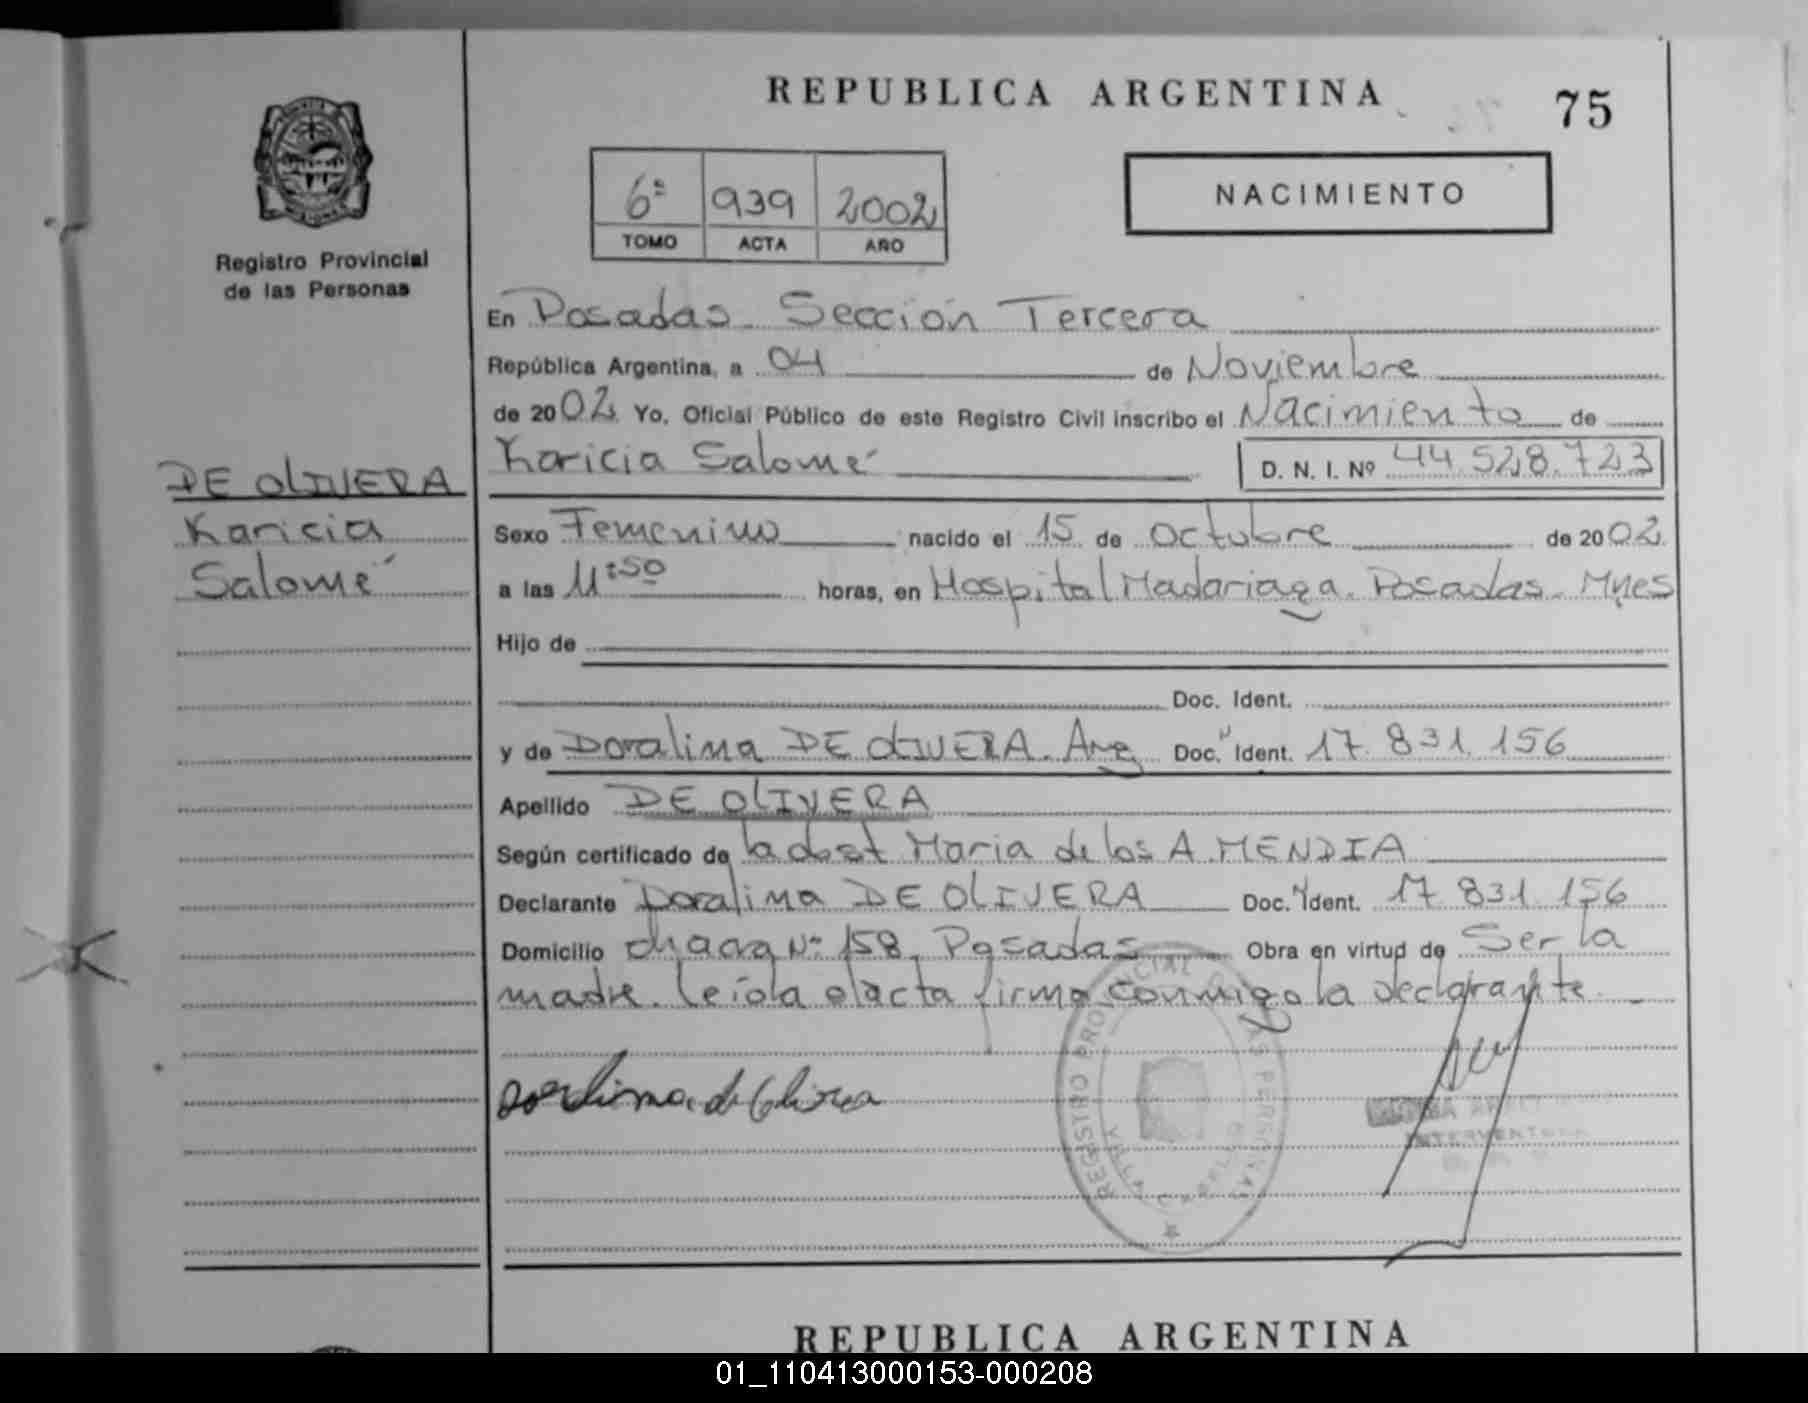 REPUBLICA ARGENTINA
75
6º 939 2002
TOMO ACTA AÑO
NACIMIENTO
Registro Provincial
de las Personas
En Posadas. Sección Tercera
República Argentina, a 04 de Noviembre
de 2002 Yo, Oficial Público de este Registro Civil inscribo el Nacimiento de
Karicia Salomé D. N. I. Nº 44.528.723
DE OLIVERA
Karicia
Salomé
Sexo Femenino nacido el 15 de Octubre de 2002
a las 11:50 horas, en Hospital Madariaga. Posadas. Mnes
Hijo de
Doc. Ident.
y de Doralina DE OLIVERA. Arg Doc. Ident. 17.831.156
Apellido DE OLIVERA
Según certificado de la obst Maria de los A. MENDIA
Declarante Doralina DE OLIVERA Doc. Ident. 17.831.156
Domicilio chacra Nº 158. Posadas Obra en virtud de Ser la
madre. Leída el acta firma conmigo la declarante.
REGISTRO PROVINCIAL DE LAS PERSONAS
INTERVENTORA
REPUBLICA ARGENTINA
01_110413000153-000208